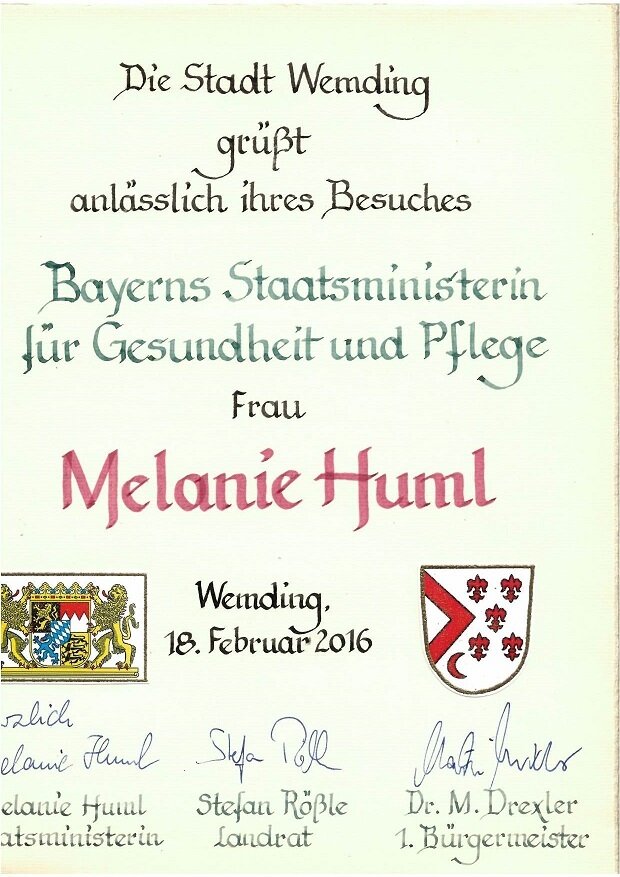 Die Stadt Wemding
grüßt
anlässlich ihres Besuches
Bayerns Staatsministerin
für Gesundheit und Pflege
Frau
Melanie Huml
Wemding,
18. Februar 2016
rzlich
elanie Huml
Stefan Rößle
elanie Huml
Stefan Rößle
Dr. M. Drexler
atsministerin
Landrat
1. Bürgermeister